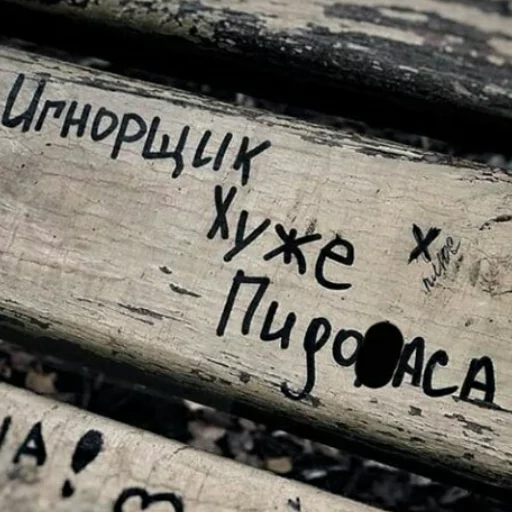 Игнорщик
Хуже
х
Пидо асА
ИА!